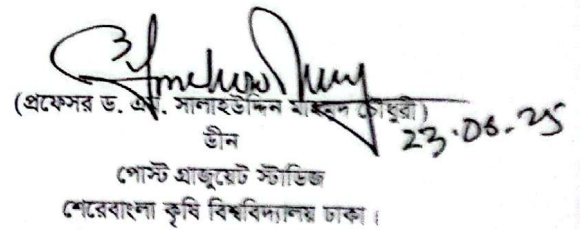 (প্রফেসর ড. এম. সালাহউদ্দিন মাহমুদ চৌধুরী)
23.06.25
ডীন
পোস্ট গ্রাজুয়েট স্টাডিজ
শেরেবাংলা কৃষি বিশ্ববিদ্যালয় ঢাকা।